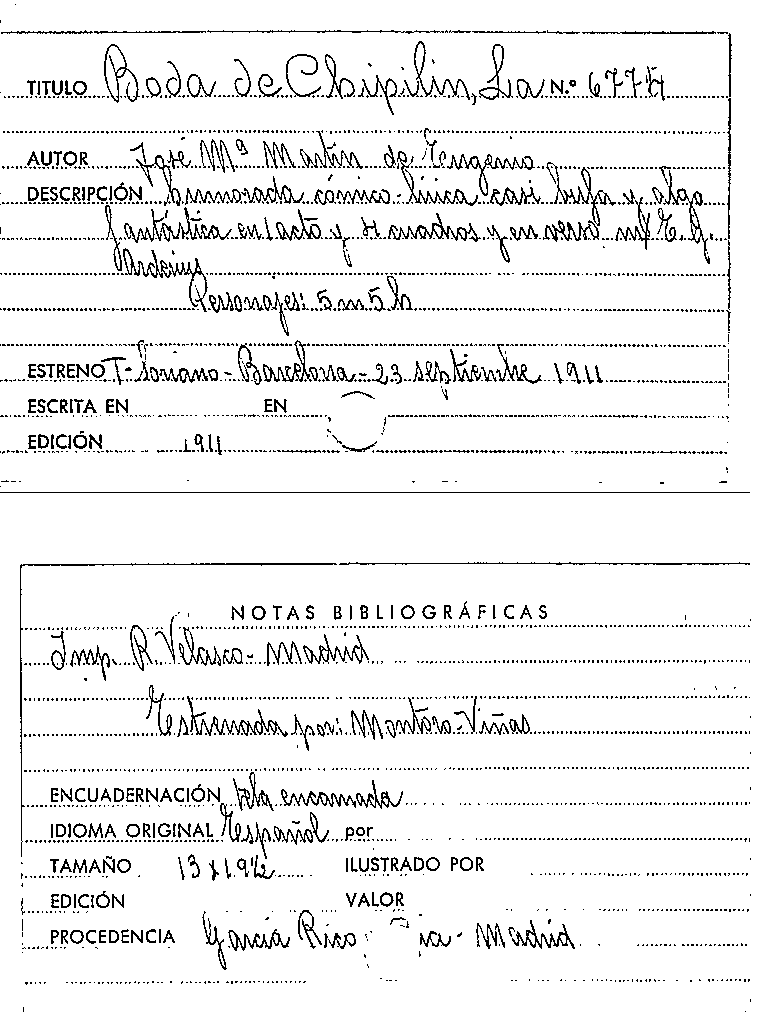 TITULO Boda de Chipilin, La N.º 677
AUTOR José Mª Martín de Eugenio
DESCRIPCIÓN humorada cómico-lírica casi bufa y algo
fantástica en 1 acto y 4 cuadros y en verso m/ E. G.
Arderius
Personajes: 5 m 5 h
ESTRENO T- Soriano - Barcelona - 23 septiembre 1911
ESCRITA EN EN
EDICIÓN 1911
NOTAS BIBLIOGRÁFICAS
Imp. R. Velasco - Madrid
Estrenada por: Montoro-Viñas
ENCUADERNACIÓN tela encarnada
IDIOMA ORIGINAL Español por
TAMAÑO 13 x 19½ ILUSTRADO POR
EDICIÓN VALOR
PROCEDENCIA García Rico - Madrid